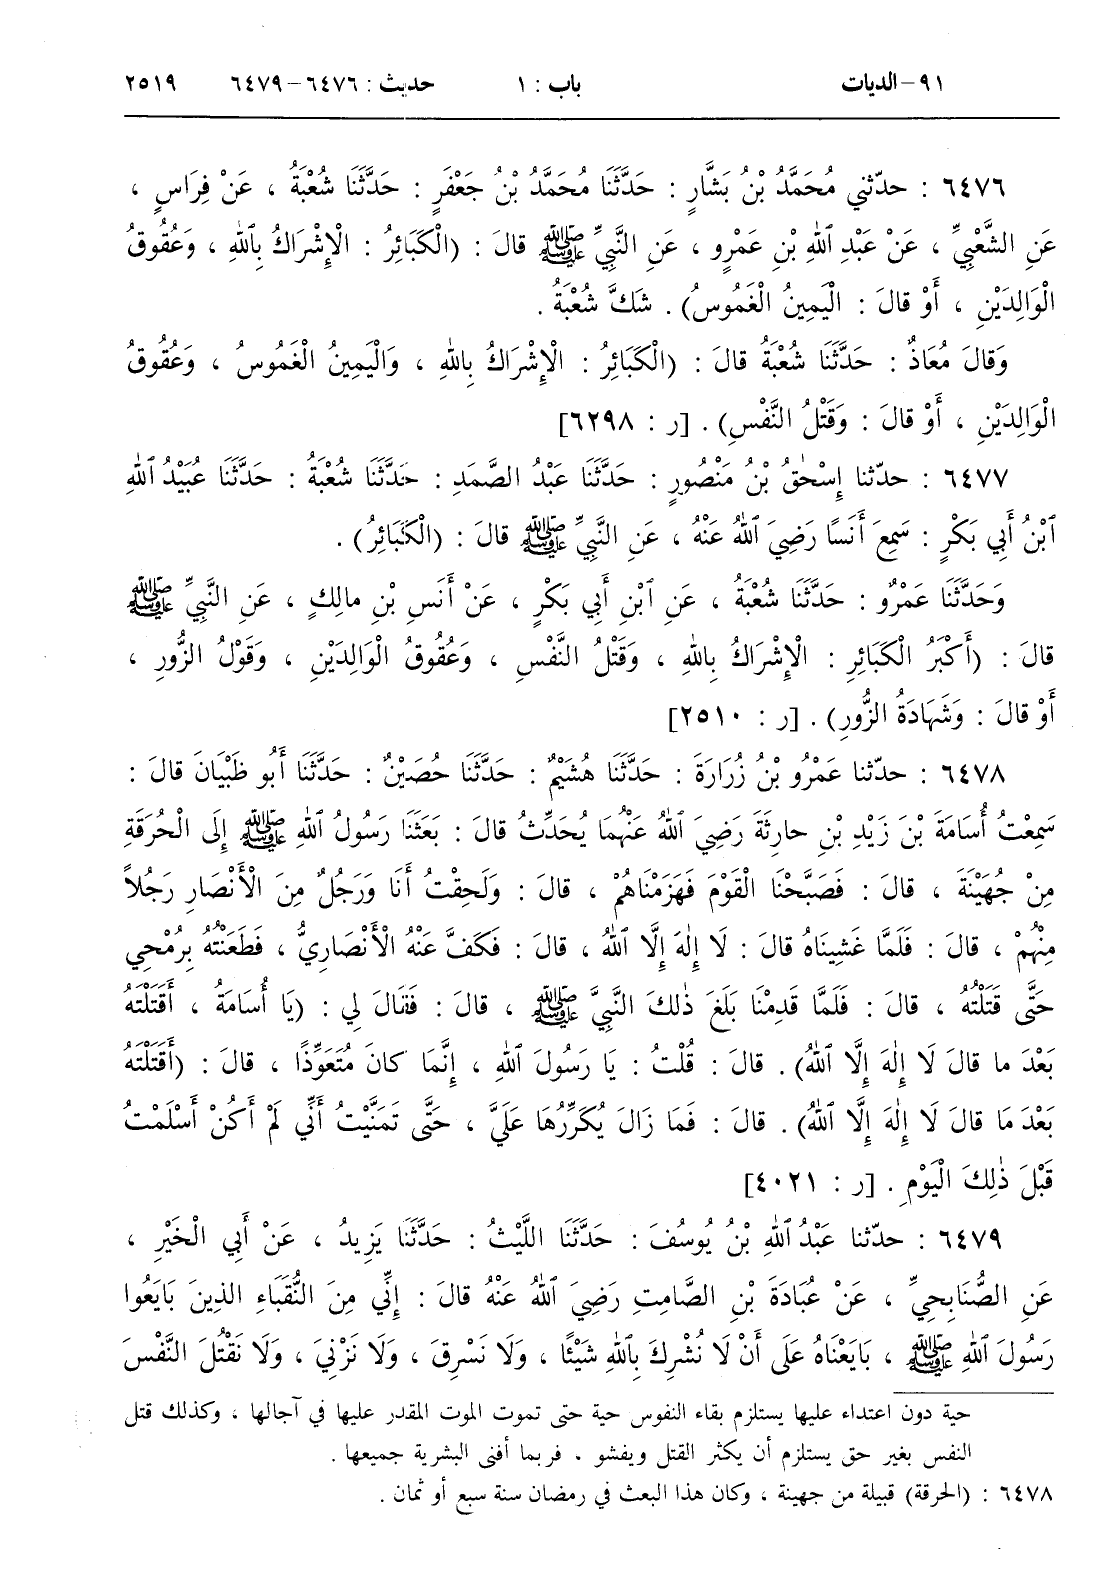 ٩١ – الديات باب : ١ حديث : ٦٤٧٦ – ٦٤٧٩ ٢٥١٩
٦٤٧٦ : حدّثني مُحَمَّدُ بْنُ بَشَّارٍ : حَدَّثَنَا مُحَمَّدُ بْنُ جَعْفَرٍ : حَدَّثَنَا شُعْبَةُ ، عَنْ فِرَاسٍ ،
عَنِ الشَّعْبِيِّ ، عَنْ عَبْدِ ٱللهِ بْنِ عَمْرٍو ، عَنِ النَّبِيِّ ﷺ قالَ : (الْكَبَائِرُ : الْإِشْرَاكُ بِاللهِ ، وَعُقُوقُ
الْوَالِدَيْنِ ، أَوْ قالَ : الْيَمِينُ الْغَمُوسُ) . شَكَّ شُعْبَةُ .
وَقالَ مُعَاذٌ : حَدَّثَنَا شُعْبَةُ قالَ : (الْكَبَائِرُ : الْإِشْرَاكُ بِاللهِ ، وَالْيَمِينُ الْغَمُوسُ ، وَعُقُوقُ
الْوَالِدَيْنِ ، أَوْ قالَ : وَقَتْلُ النَّفْسِ) . [ر : ٦٢٩٨]
٦٤٧٧ : حدّثنا إِسْحٰقُ بْنُ مَنْصُورٍ : حَدَّثَنَا عَبْدُ الصَّمَدِ : حَدَّثَنَا شُعْبَةُ : حَدَّثَنَا عُبَيْدُ ٱللهِ
ٱبْنُ أَبِي بَكْرٍ : سَمِعَ أَنَسًا رَضِيَ ٱللهُ عَنْهُ ، عَنِ النَّبِيِّ ﷺ قالَ : (الْكَبَائِرُ) .
وَحَدَّثَنَا عَمْرٌو : حَدَّثَنَا شُعْبَةُ ، عَنِ ٱبْنِ أَبِي بَكْرٍ ، عَنْ أَنَسِ بْنِ مالِكٍ ، عَنِ النَّبِيِّ ﷺ
قالَ : (أَكْبَرُ الْكَبَائِرِ : الْإِشْرَاكُ بِاللهِ ، وَقَتْلُ النَّفْسِ ، وَعُقُوقُ الْوَالِدَيْنِ ، وَقَوْلُ الزُّورِ ،
أَوْ قالَ : وَشَهَادَةُ الزُّورِ) . [ر : ٢٥١٠]
٦٤٧٨ : حدّثنا عَمْرُو بْنُ زُرَارَةَ : حَدَّثَنَا هُشَيْمٌ : حَدَّثَنَا حُصَيْنٌ : حَدَّثَنَا أَبُو ظَبْيَانَ قالَ :
سَمِعْتُ أُسَامَةَ بْنَ زَيْدِ بْنِ حارِثَةَ رَضِيَ ٱللهُ عَنْهُمَا يُحَدِّثُ قالَ : بَعَثَنَا رَسُولُ ٱللهِ ﷺ إِلَى الْحُرَقَةِ
مِنْ جُهَيْنَةَ ، قالَ : فَصَبَّحْنَا الْقَوْمَ فَهَزَمْنَاهُمْ ، قالَ : وَلَحِقْتُ أَنَا وَرَجُلٌ مِنَ الْأَنْصَارِ رَجُلاً
مِنْهُمْ ، قالَ : فَلَمَّا غَشِينَاهُ قالَ : لَا إِلٰهَ إِلَّا ٱللهُ ، قالَ : فَكَفَّ عَنْهُ الْأَنْصَارِيُّ ، فَطَعَنْتُهُ بِرُمْحِي
حَتَّى قَتَلْتُهُ ، قالَ : فَلَمَّا قَدِمْنَا بَلَغَ ذٰلِكَ النَّبِيَّ ﷺ ، قالَ : فَقَالَ لِي : (يَا أُسَامَةُ ، أَقَتَلْتَهُ
بَعْدَ ما قالَ لَا إِلٰهَ إِلَّا ٱللهُ) . قالَ : قُلْتُ : يَا رَسُولَ ٱللهِ ، إِنَّمَا كانَ مُتَعَوِّذًا ، قالَ : (أَقَتَلْتَهُ
بَعْدَ مَا قالَ لَا إِلٰهَ إِلَّا ٱللهُ) . قالَ : فَمَا زَالَ يُكَرِّرُهَا عَلَيَّ ، حَتَّى تَمَنَّيْتُ أَنِّي لَمْ أَكُنْ أَسْلَمْتُ
قَبْلَ ذٰلِكَ الْيَوْمِ . [ر : ٤٠٢١]
٦٤٧٩ : حدّثنا عَبْدُ ٱللهِ بْنُ يُوسُفَ : حَدَّثَنَا اللَّيْثُ : حَدَّثَنَا يَزِيدُ ، عَنْ أَبِي الْخَيْرِ ،
عَنِ الصُّنَابِحِيِّ ، عَنْ عُبَادَةَ بْنِ الصَّامِتِ رَضِيَ ٱللهُ عَنْهُ قالَ : إِنِّي مِنَ النُّقَبَاءِ الذِينَ بَايَعُوا
رَسُولَ ٱللهِ ﷺ ، بَايَعْنَاهُ عَلَى أَنْ لَا نُشْرِكَ بِاللهِ شَيْئًا ، وَلَا نَسْرِقَ ، وَلَا نَزْنِيَ ، وَلَا نَقْتُلَ النَّفْسَ
حية دون اعتداء عليها يستلزم بقاء النفوس حية حتى تموت الموت المقدر عليها في آجالها ، وكذلك قتل
النفس بغير حق يستلزم أن يكثر القتل ويفشو ، فربما أفنى البشرية جميعها .
٦٤٧٨ : (الحرقة) قبيلة من جهينة ، وكان هذا البعث في رمضان سنة سبع أو ثمان .